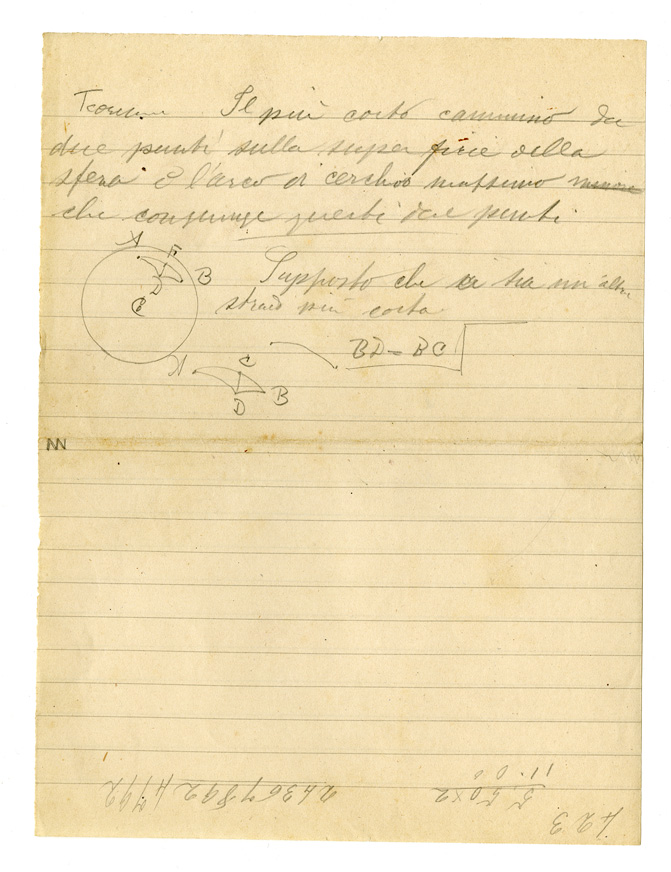 Il più corto cammino da
due punti sulla superficie della
sfera è l'arco di cerchio massimo
che congiunge questi due punti
A
E
B
D
C
Supposto che ci ha un altra
strada più corta
BD = BC
A
C
D
B
NN
5.50×2
11.00
24367892 4792
423